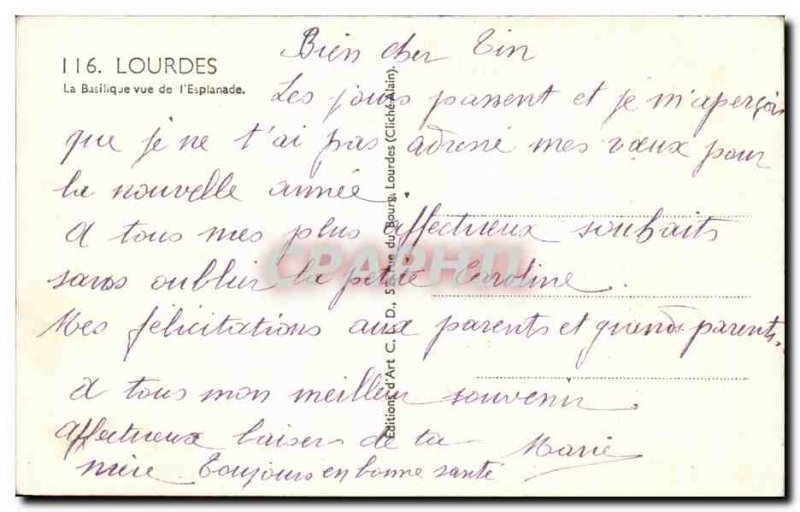 116. LOURDES
La Basilique vue de l'Esplanade.
Bien cher Tin
Les jours passent et je m'aperçois
que je ne t'ai pas adréssé mes vœux pour
la nouvelle année.
A tous mes plus affectueux souhaits
sans oublier la petite Caroline.
Mes félicitations aux parents et grands parents.
A tous mon meilleur souvenir
Affectueux baisers de ta Marie
mère. Toujours en bonne santé
Editions d'Art C. D., Lourdes (Cliché Alain).
CPAPHIL